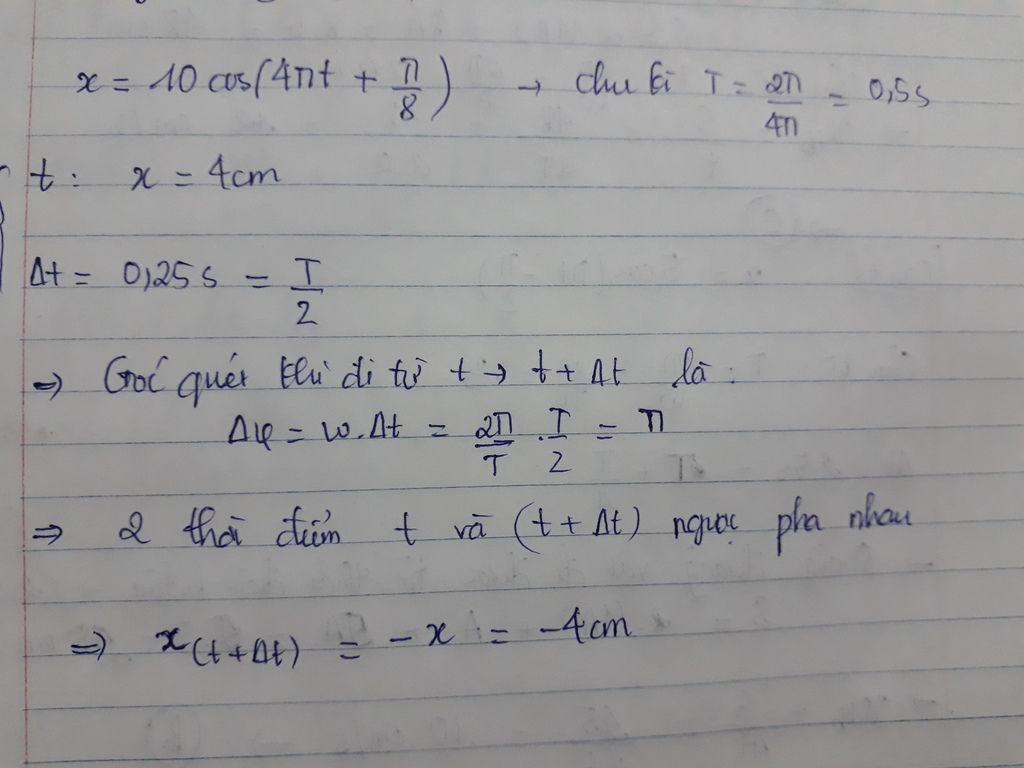 x = 10 cos(4πt + π/8) → chu kì T = 2π/4π = 0,5s
t : x = 4cm
Δt = 0,25 s = T/2
⇒ Góc quét khi đi từ t → t + Δt là :
Δφ = ω.Δt = 2π/T . T/2 = π
⇒ 2 thời điểm t và (t + Δt) ngược pha nhau
⇒ x(t + Δt) = -x = -4cm